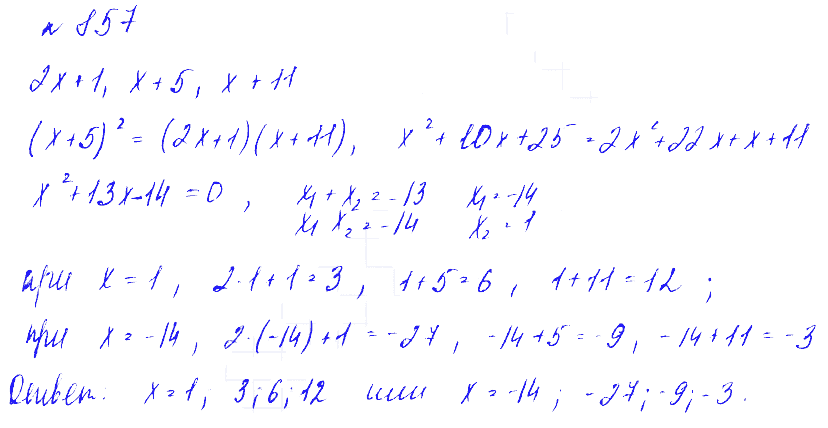 № 857
2x+1, x+5, x+11
(x+5)² = (2x+1)(x+11), x²+10x+25=2x²+22x+x+11
x²+13x-14=0, x₁+x₂=-13 x₁=-14
x₁ x₂=-14 x₂=1
при x=1, 2·1+1=3, 1+5=6, 1+11=12;
при x=-14, 2·(-14)+1=-27, -14+5=-9, -14+11=-3
Ответ: x=1; 3;6;12 или x=-14; -27;-9;-3.